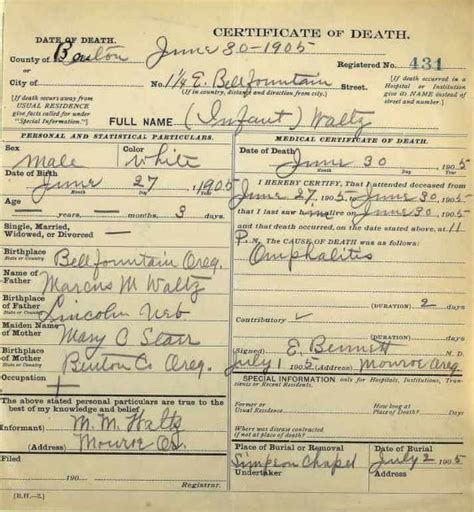 CERTIFICATE OF DEATH.
DATE OF DEATH. June 30-1905
County of Benton Registered No. 431
or
City of No. 1¼ E. Bellfountain Street.
(If death occurred in a Hospital or Institution give its NAME instead of street and number)
(If death occurs away from USUAL RESIDENCE give facts called for under "Special Information.")
(If in country, distance and direction from city.)
FULL NAME (Infant) Waltz
PERSONAL AND STATISTICAL PARTICULARS.
Sex Male Color White
Date of Birth June 27, 1905
Month Day Year
Age — years, — months, 3 days
Single, Married, Widowed, or Divorced —
Birthplace Bellfountain Oreg.
State or Country
Name of Father Marcus M Waltz
Birthplace of Father Lincoln Neb
State or Country
Maiden Name of Mother Mary C Starr
Birthplace of Mother Benton Co Oreg.
State or Country
Occupation
The above stated personal particulars are true to the best of my knowledge and belief
(Informant) M. M. Waltz
(Address) Monroe Or.
Filed 190
Registrar.
MEDICAL CERTIFICATE OF DEATH.
Date of Death: June 30 1905
Month Day Year
I HEREBY CERTIFY, That I attended deceased from June 27, 1905, to June 30, 1905
that I last saw him alive on June 30-1905
and that death occurred, on the date stated above, at 11
P. M. The CAUSE OF DEATH was as follows:
Omphalitis
(DURATION) 2 days
Contributory
(DURATION) days
Signed E. Bennett
July 1 1905 (Address) Monroe Oreg
SPECIAL INFORMATION only for Hospitals, Institutions, Transients or Recent Residents.
Former or Usual Residence
How long at Place of Death? Days
Where was disease contracted if not at place of death?
Place of Burial or Removal Simpson Chapel
Date of Burial July 2 1905
Undertaker (Address)